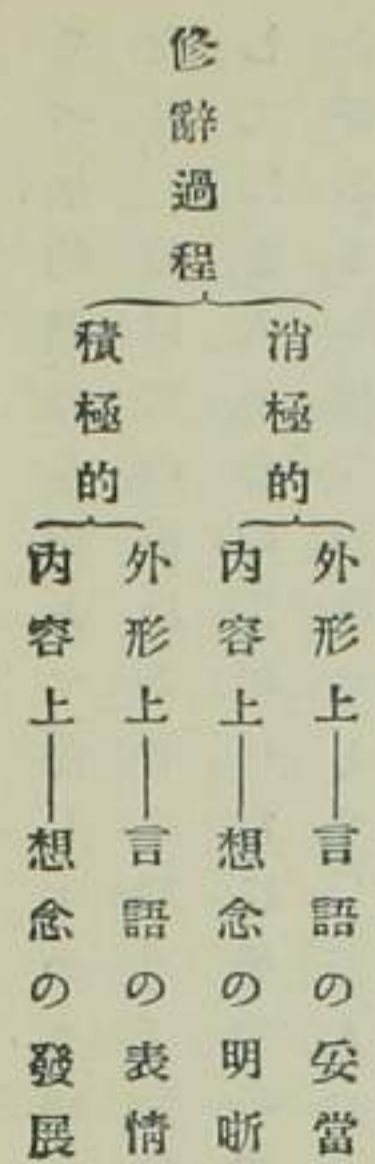 修辭過程
消極的
外形上——言語の妥當
內容上——想念の明晰
積極的
外形上——言語の表情
內容上——想念の發展